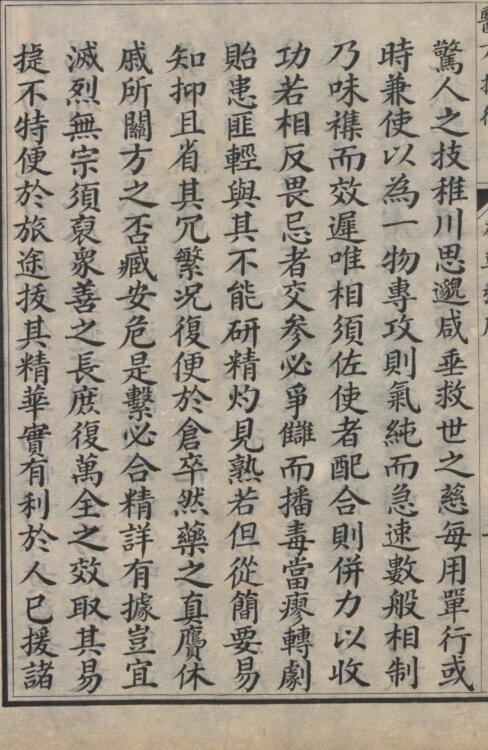 驚人之技稚川思邈咸垂救世之慈每用單行或
時兼使以為一物專攻則氣純而急速數般相制
乃味襍而效遲唯相須佐使者配合則併力以收
功若相反畏忌者交參必爭讎而播毒當瘳轉劇
貽患匪輕與其不能研精灼見熟若但從簡要易
知抑且省其冗繁况復便於倉卒然藥之真贗休
戚所關方之否臧安危是繫必合精詳有據豈宜
滅烈無宗須裒衆善之長庶復萬全之效取其易
捷不特便於旅途拔其精華實有利於人已援諸